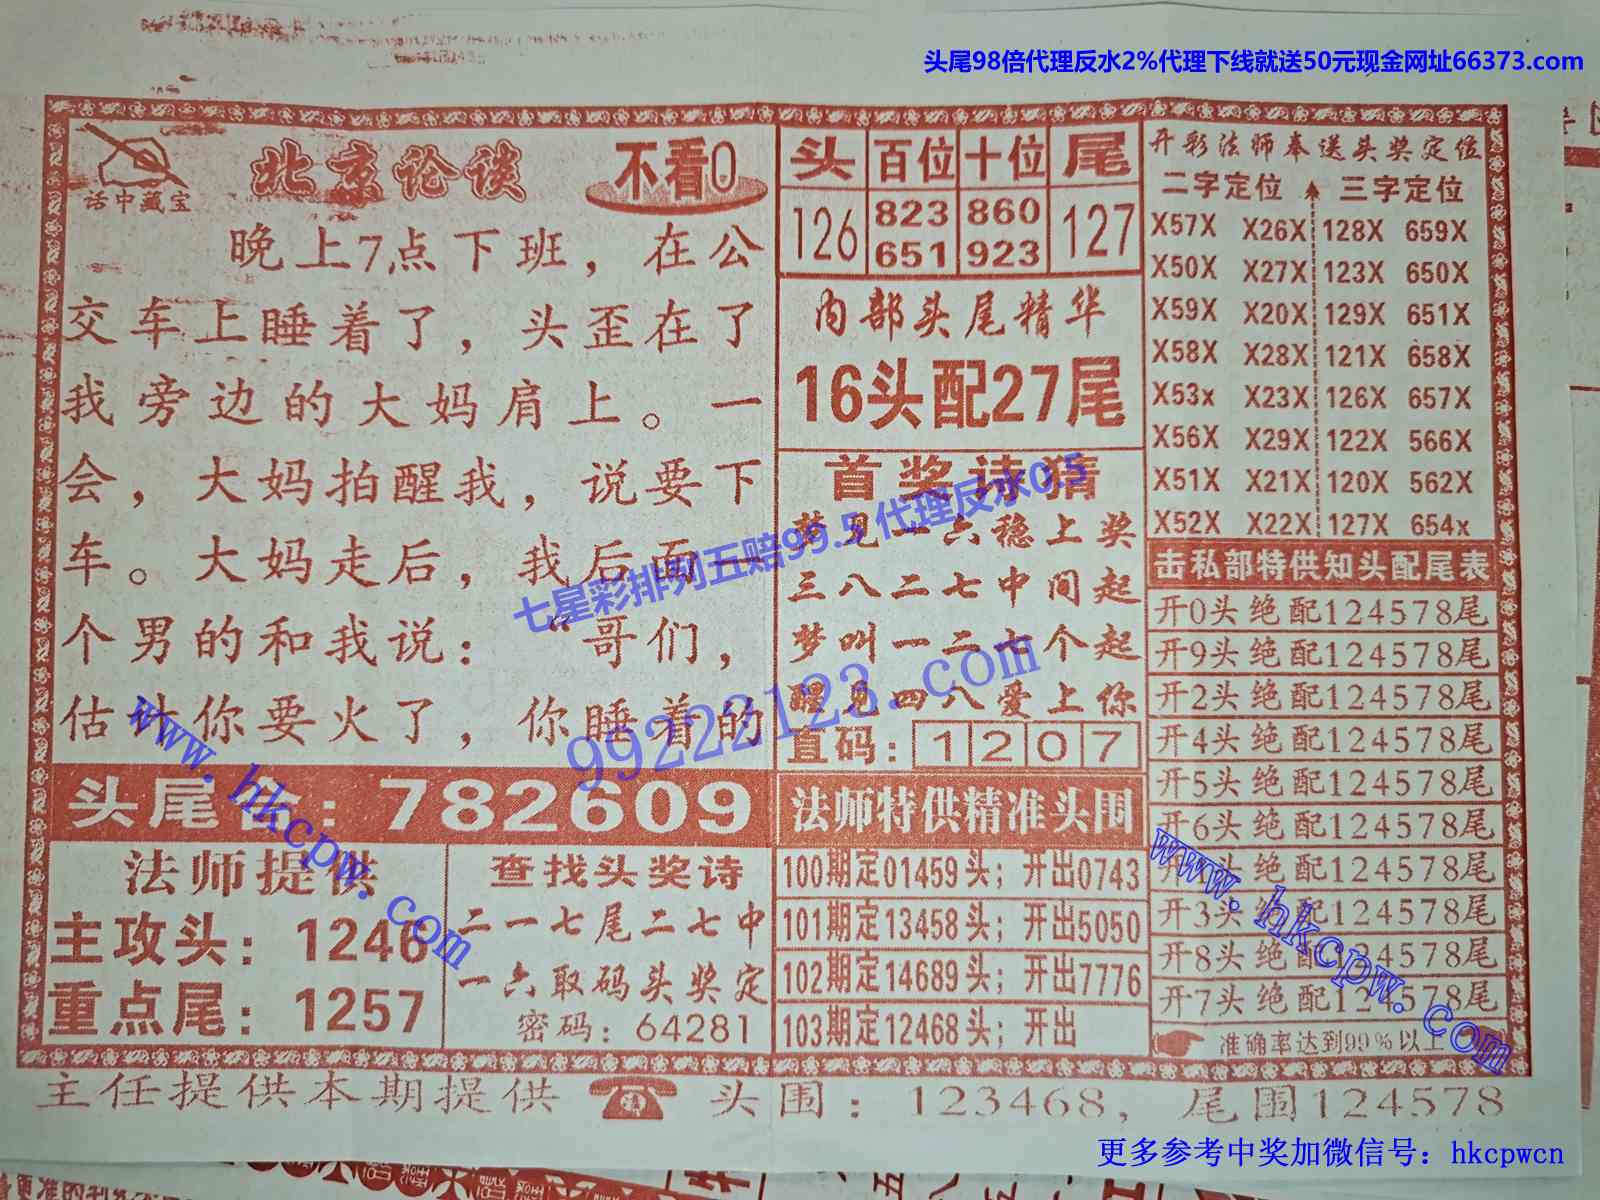 头尾98倍代理反水2%代理下线就送50元现金网址66373.com
话中藏宝
北京论谈
不看0
晚上7点下班，在公
交车上睡着了，头歪在了
我旁边的大妈肩上。一
会，大妈拍醒我，说要下
车。大妈走后，我后面一
个男的和我说：“哥们，
估计你要火了，你睡着的
头尾合：782609
法师提供
主攻头：1246
重点尾：1257
查找头奖诗
二一七尾二七中
一六取码头奖定
密码：64281
头 百位 十位 尾
126 823 860 127
651 923
内部头尾精华
16头配27尾
首奖诗猜
梦见一六稳上奖
三八二七中间起
梦叫一二七个起
醒见四八爱上你
直码：1207
法师特供精准头围
100期定01459头；开出0743
101期定13458头；开出5050
102期定14689头；开出7776
103期定12468头；开出
开彩法师奉送头奖定位
二字定位 三字定位
X57X X26X 128X 659X
X50X X27X 123X 650X
X59X X20X 129X 651X
X58X X28X 121X 658X
X53x X23X 126X 657X
X56X X29X 122X 566X
X51X X21X 120X 562X
X52X X22X 127X 654x
击私部特供知头配尾表
开0头绝配124578尾
开9头绝配124578尾
开2头绝配124578尾
开4头绝配124578尾
开5头绝配124578尾
开6头绝配124578尾
头绝配124578尾
开3头绝配124578尾
开8头绝配124578尾
开7头绝配124578尾
准确率达到99%以上
主任提供本期提供 头围：123468，尾围124578
七星彩排列五赔99.5代理反水0.5
99222123.com
www.hkcpw.com
www.hkcpw.com
更多参考中奖加微信号：hkcpwcn